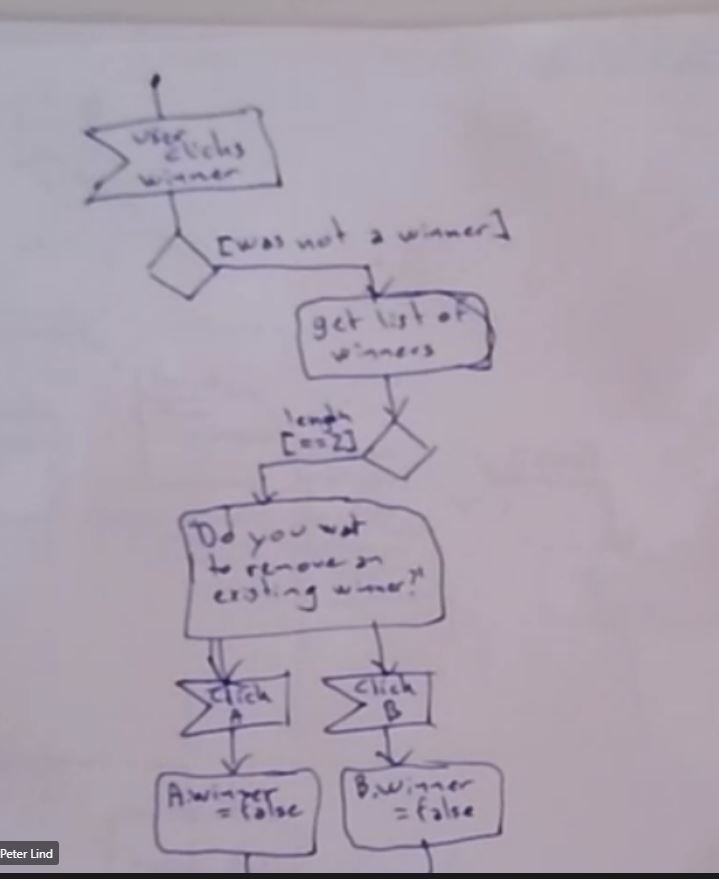 user
clicks
winner
[was not a winner]
get list of
winners
length
[==2]
"Do you wat
to remove an
existing winner?"
Click
A
Click
B
A.winner
= false
B.winner
= false
Peter Lind